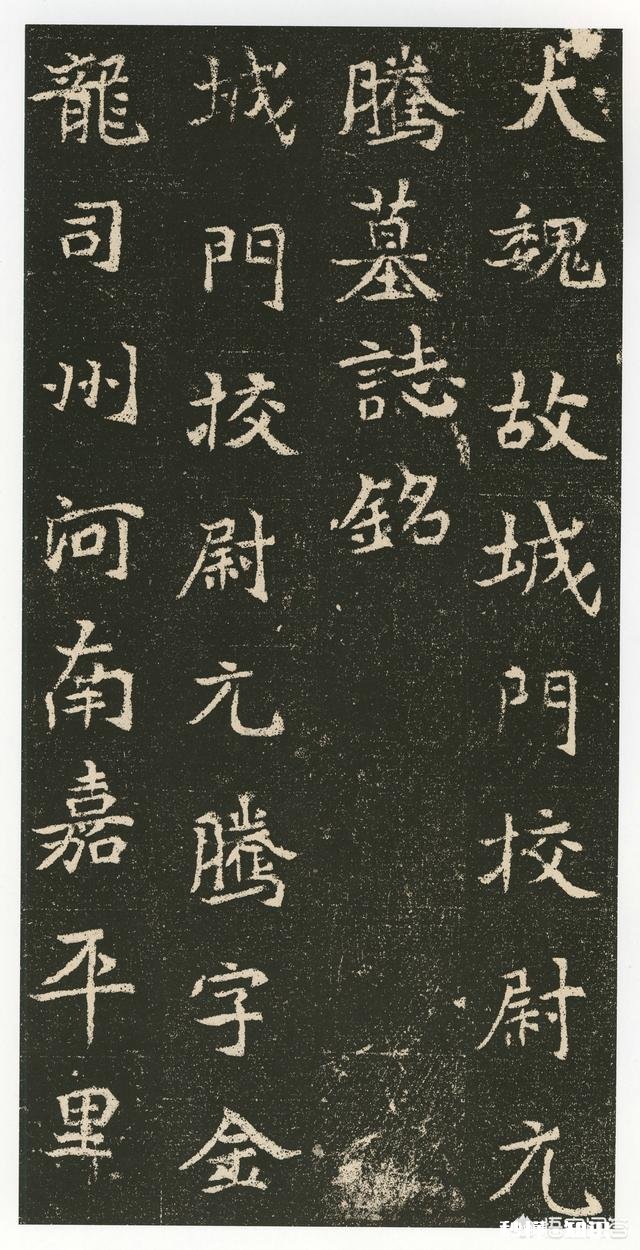 大魏故城門校尉元
騰墓誌銘
城門校尉元騰字金
龍司州河南嘉平里